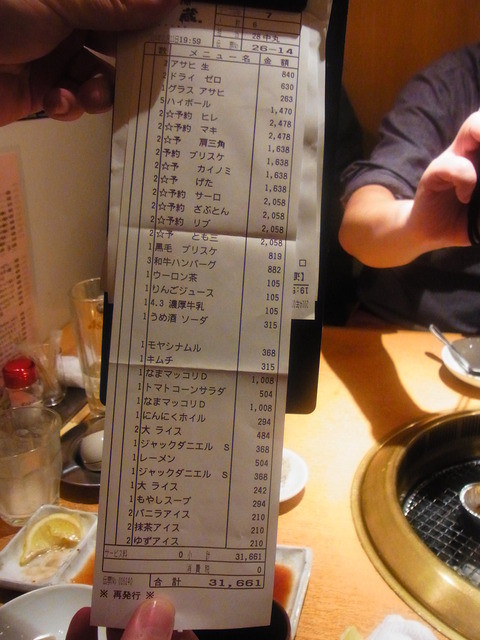 蔵
7
19:59 28 中丸
26-14
数 メニュー名 金額
アサヒ 生 840
ドライ ゼロ 630
1 グラス アサヒ 263
5 ハイボール 1,470
2 ☆予約 ヒレ 2,478
2 ☆予約 マキ 2,478
2 ☆予 肩三角 1,638
2 予約 ブリスケ 1,638
2 ☆予 カイノミ 1,638
2 ☆予 げた 1,638
2 ☆予約 サーロ 2,058
2 ☆予約 ざぶとん 2,058
2 ☆予約 リブ 2,058
2 ☆予 とも三 2,058
1 黒毛 ブリスケ 819
3 和牛ハンバーグ 882
1 ウーロン茶 105
1 りんごジュース 105
1 4.3 濃厚牛乳 105
1 うめ酒 ソーダ 315
1 モヤシナムル 368
1 キムチ 315
1 なまマッコリD 1,008
1 トマトコーンサラダ 504
1 なまマッコリD 1,008
1 にんにくホイル 294
2 大 ライス 484
1 ジャックダニエル S 368
1 レーメン 504
1 ジャックダニエル S 368
1 大 ライス 242
1 もやしスープ 294
2 バニラアイス 210
2 抹茶アイス 210
2 ゆずアイス 210
サービス料 0 小計 31,661
消費税 0
合計 31,661
※ 再発行 ※